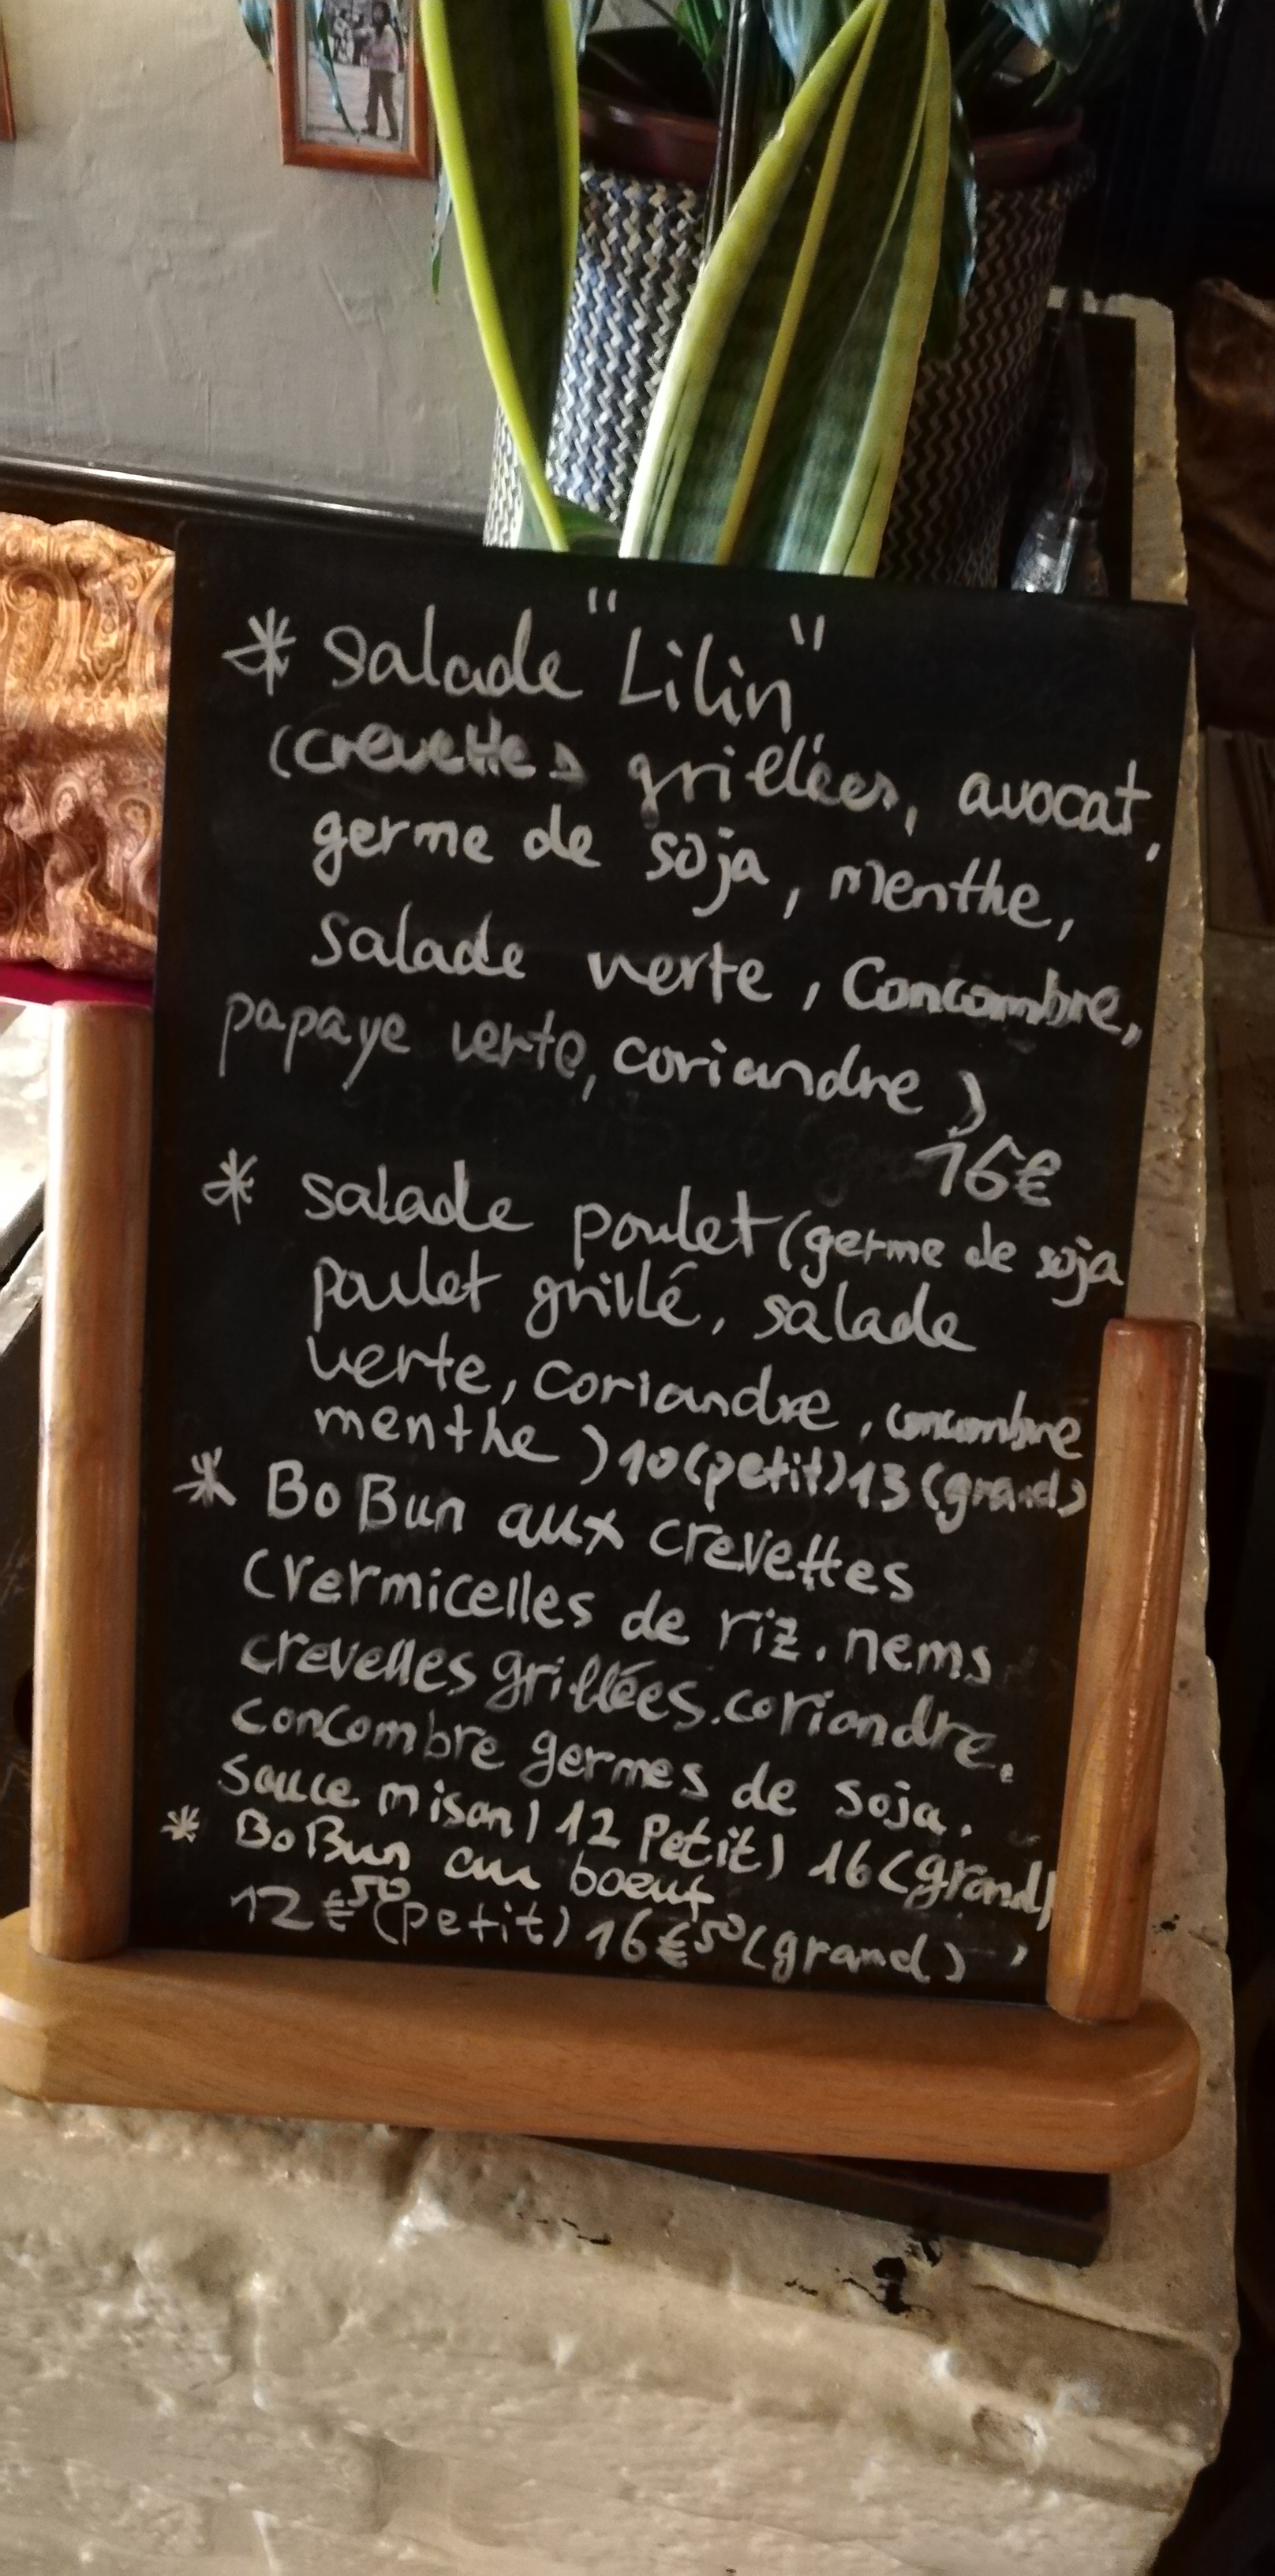 * Salade "Lilin"
(crevettes grillées, avocat,
germe de soja, menthe,
Salade verte, Concombre,
papaye verte, coriandre)
16€
* salade poulet (germe de soja
poulet grillé, salade
verte, coriandre, concombre
menthe) 10 (petit) 13 (grand)
* Bo Bun aux crevettes
(vermicelles de riz. nems
crevettes grillées. coriandre.
concombre germes de soja.
Sauce maison) 12 Petit) 16 (grand)
* Bo Bun au boeuf
12€50 (petit) 16€50 (grand)